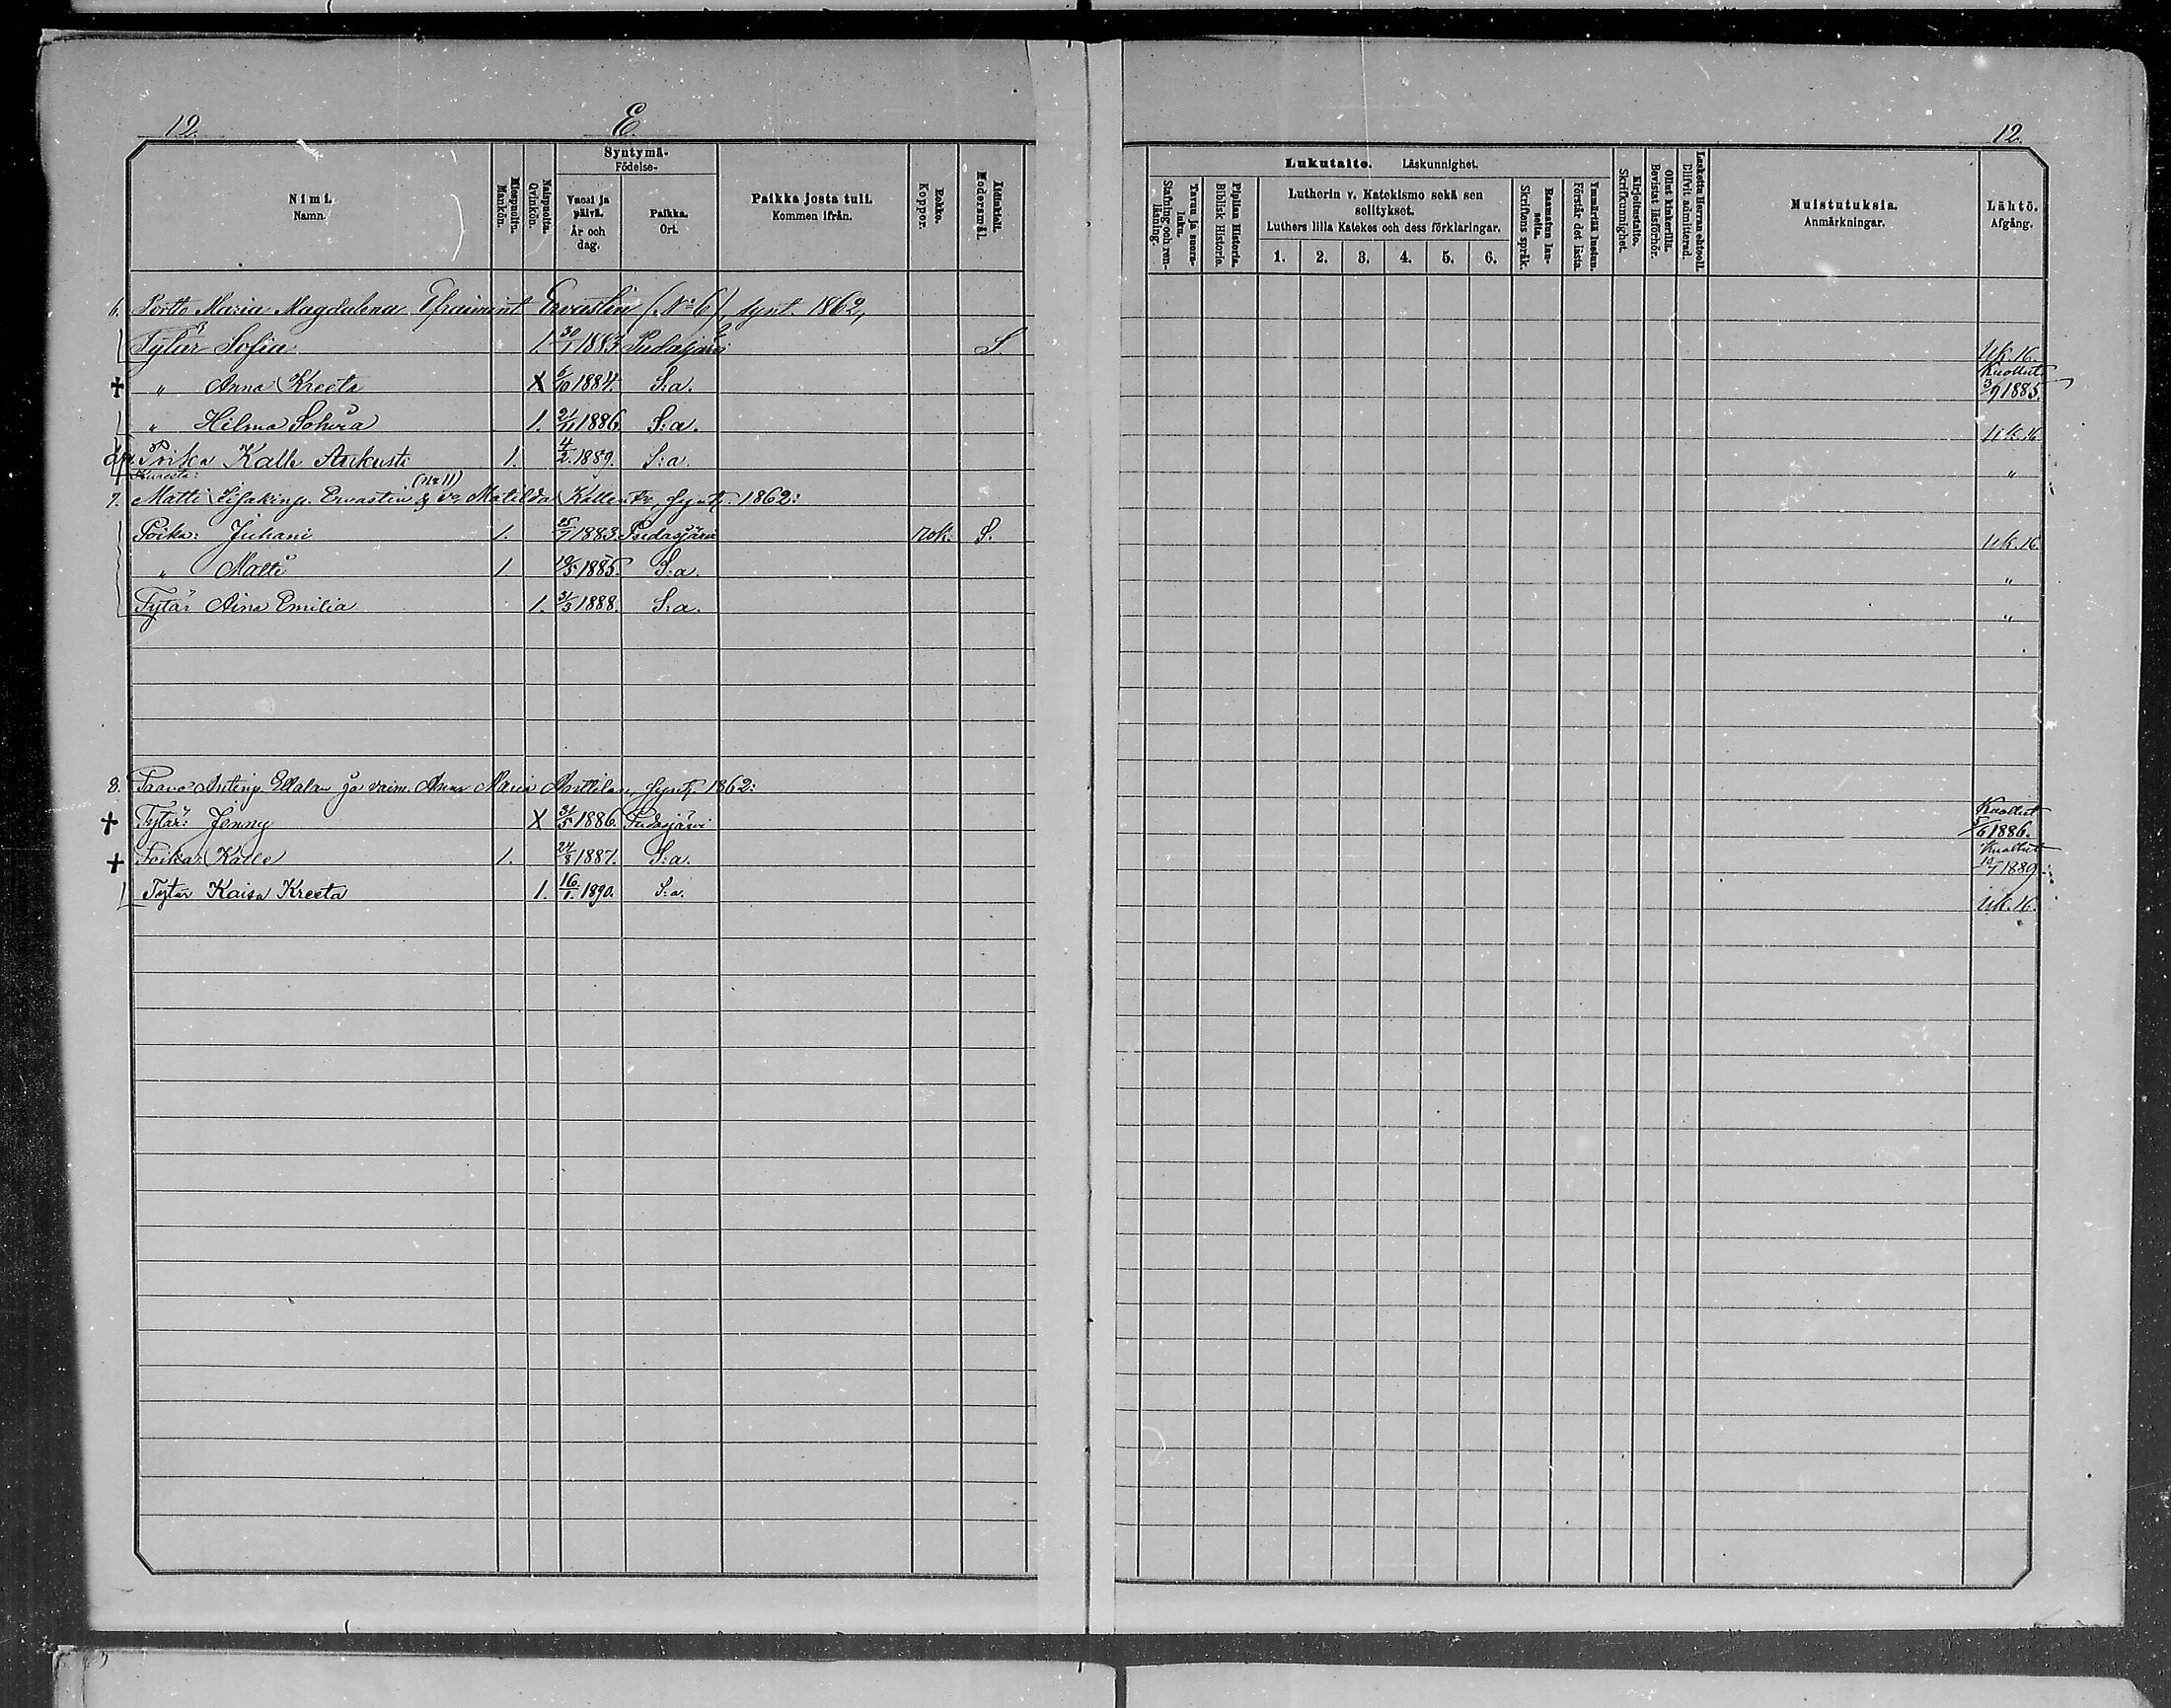 12.
E.
12.
Nimi.
Namn.
Miespuolia.
Mankön.
Naispuolia.
Qvinkön.
Syntymä-
Födelse-
Vuosi ja päivä.
År och dag.
Paikka.
Ort.
Paikka josta tuli.
Kommen ifrån.
Rokko.
Koppor.
Äidinkieli.
Modersmål.
Lukutaito. Läskunnighet.
Tavuu ja suora-
luku.
Stafning och ren-
läsning.
Piplian Historia.
Biblisk Historia.
Lutherin v. Katekismo sekä sen
selitykset.
Luthers lilla Katekes och dess förklaringar.
1. 2. 3. 4. 5. 6.
Raamatun lau-
seita.
Skriftens språk.
Ymmärtää luetun.
Förstår det lästa.
Kirjoitustaito.
Skrifkunnighet.
Ollut kinkerillä.
Bevistat läsförhör.
Laskettu Herran ehtooll.
Blifvit admitterad.
Muistutuksia.
Anmärkningar.
Lähtö.
Afgång.
6. Portto Maria Magdalena Efraimint Ervastin (No 6), synt. 1862,
Tytär Sofia 1. 30/1 1883. Pudasjärvi S. Uk. 16.
+ " Anna Kreeta X 6/10 1884. S:a. Kuollut 3/9 1885.
" Hilma Sohvia 1. 21/11 1886. S:a. Uk. 16
Poika Kalle Aukusti 1. 4/2. 1889. S:a. "
7. Matti Ervastin & v:o Matilda Kallent:r, synt. 1862: (No 11)
Poika: Juhani 1. 15/7 1883. Pudasjärvi rok. S. Uk. 16
" Matti 1. 19/5 1885. S:a. "
Tytär Aina Emilia 1. 31/3 1888. S:a. "
8. Paavo Antinp. ja vaim. Anna Maria synt. 1862:
+ Tytär: Jenny X 31/5 1886. Pudasjärvi Kuollut 5/6 1886.
+ Poika: Kalle 1. 24/8 1887. S:a. Kuollut 10/7 1889.
Tytär Kaisa Kreeta 1. 16./1. 1890. S:a. Uk. 16.